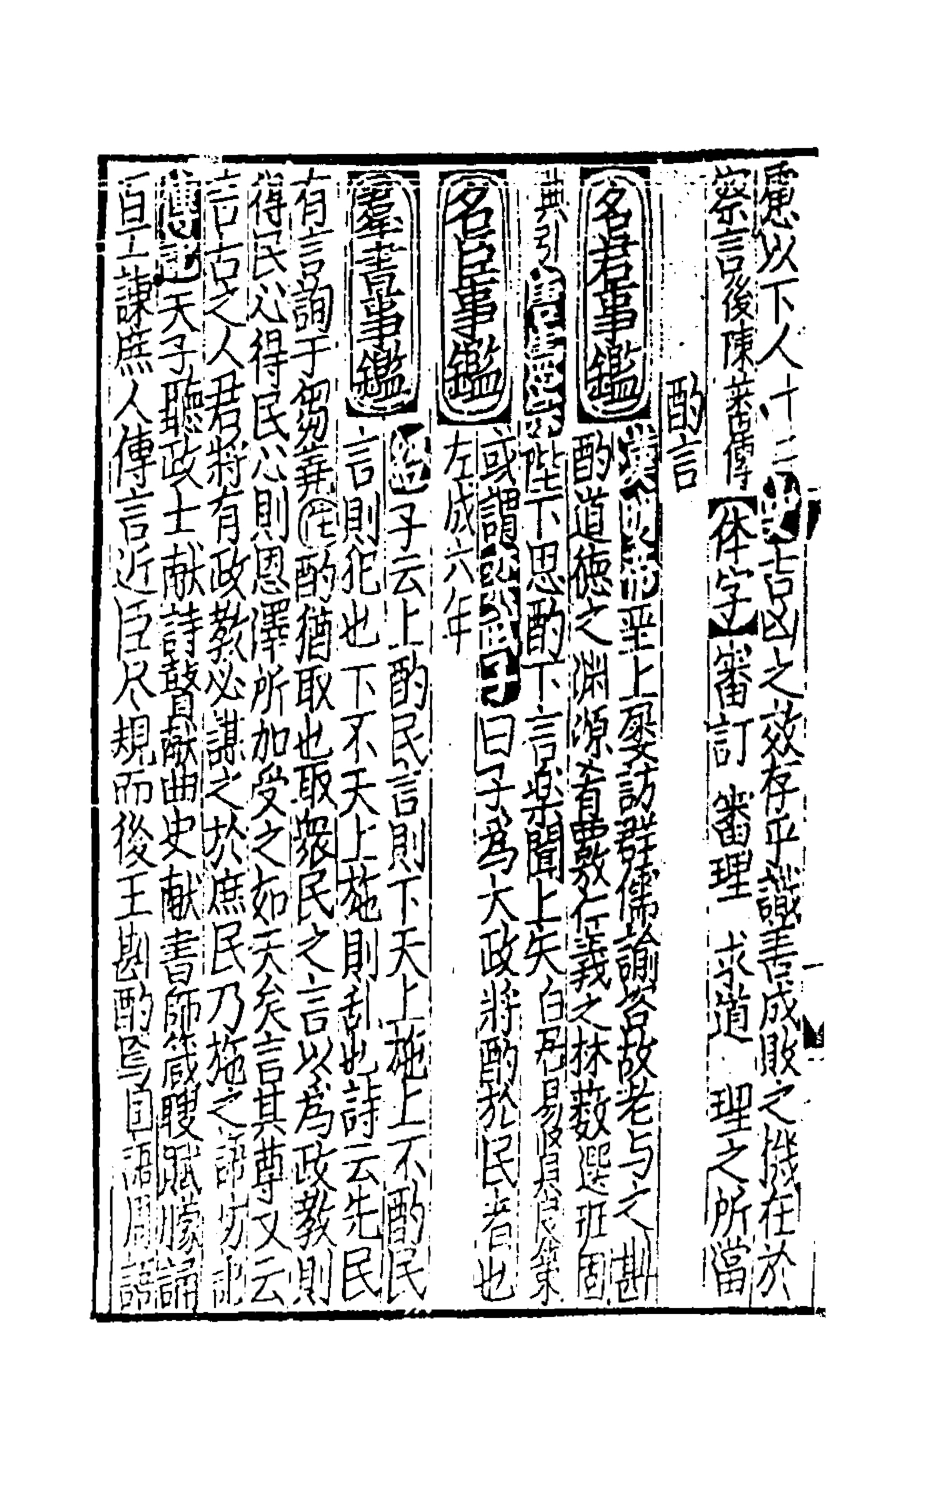 慮以下人十二史吉凶之效存乎識善成敗之機在於
察言後陳蕃傳【体字】審訂 審理 求道 理之所當
酌言
名君事鑑
漢明帝坐上嬖訪群儒諭咨故老与之斟
酌道德之渊源肴覈仁義之林薮選班固
典引 陛下思酌下言楽聞上失白居易賢良策
名臣事鑑
或謂 子曰子為大政將酌於民者也
左成六年
羣書事鑑
子云上酌民言則下天上施上不酌民
言則犯也下不天上施則乱也詩云先民
有言詢于芻荛注酌猶取也取衆民之言以為政教則
得民心得民心則恩澤所加受之如天矣言其尊又云
言古之人君將有政教必謀之於庶民乃施之語坊記
傳記天子聽政士献詩瞽献曲史献書師箴瞍賦矇誦
百工諫庶人傳言近臣尽規而後王斟酌焉国語周語